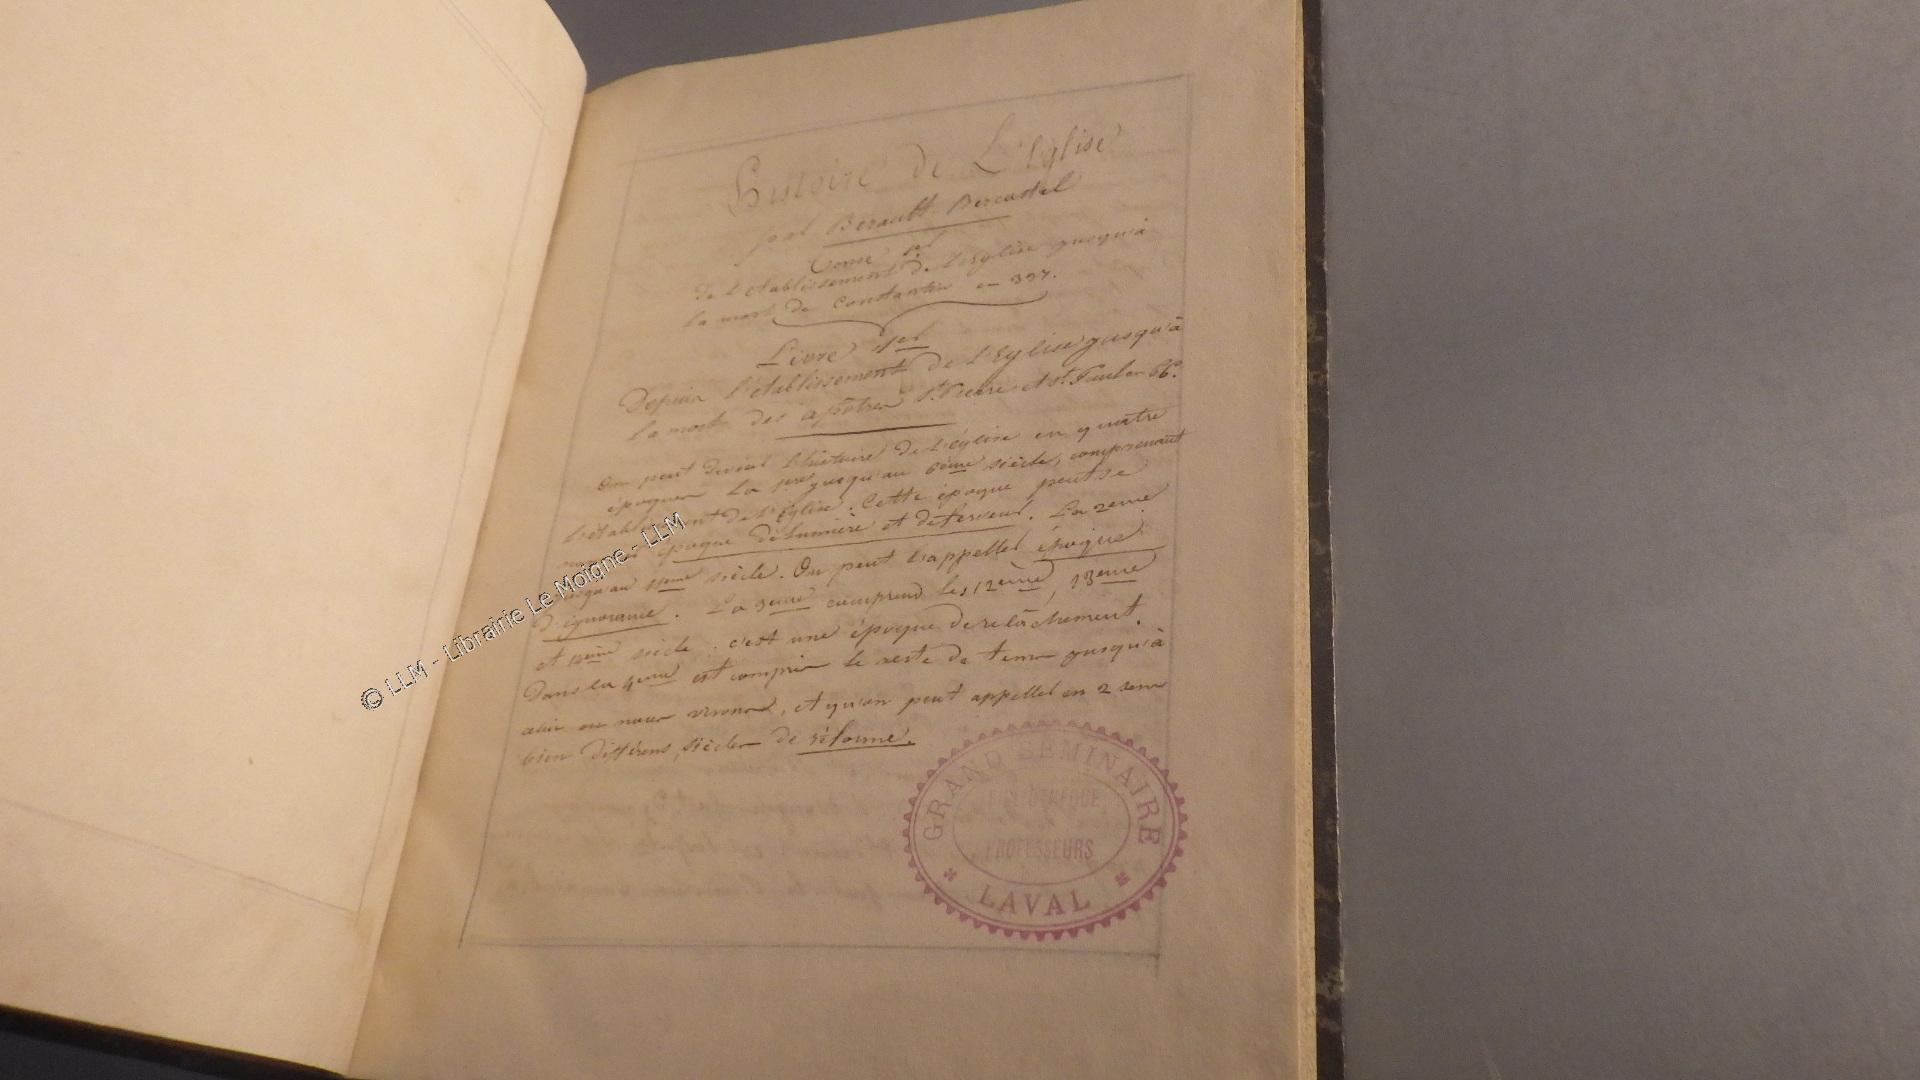 Histoire de L'église
par Bérault Bercastel
Tome 1er
De l'établissement de l'église jusqu'à
la mort de Constantin en 337.
Livre 1er
Depuis l'établissement de l'église jusqu'à
la mort des apôtres St. Pierre et St. Paul en 66.
On peut diviser l'histoire de l'église en quatre
époques La 1ere jusqu'au 6ème siècle, comprenant
l'établissement de l'église. Cette époque peut se
époque de lumière et de ferveur. La 2eme
jusqu'au 11eme siècle. On peut l'appeller époque
d'ignorance. La 3eme comprend les 12ème, 13eme
et siècle. c'est une époque de relâchement.
Dans la 4eme est compris le reste de tems jusqu'à
celui ou nous vivons, et qu'on peut appeller en 2 sens
bien différens, siècle de réforme.
GRAND SEMINAIRE
PROFESSEURS
LAVAL
© LLM - Librairie Le Moigne - LLM